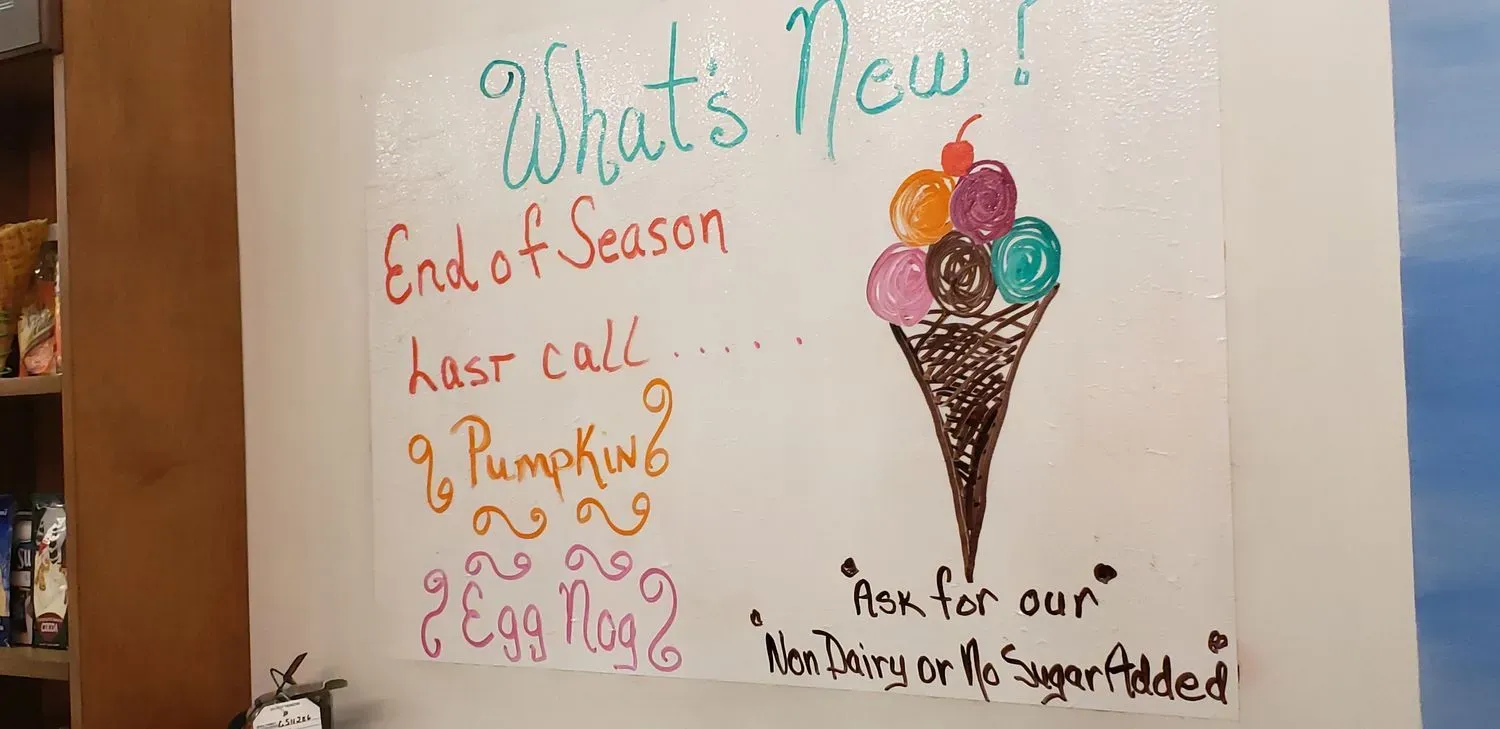 What's New!
End of Season
Last call . . . . .
Pumpkin
Egg Nog
"Ask for our"
"Non Dairy or No Sugar Added"